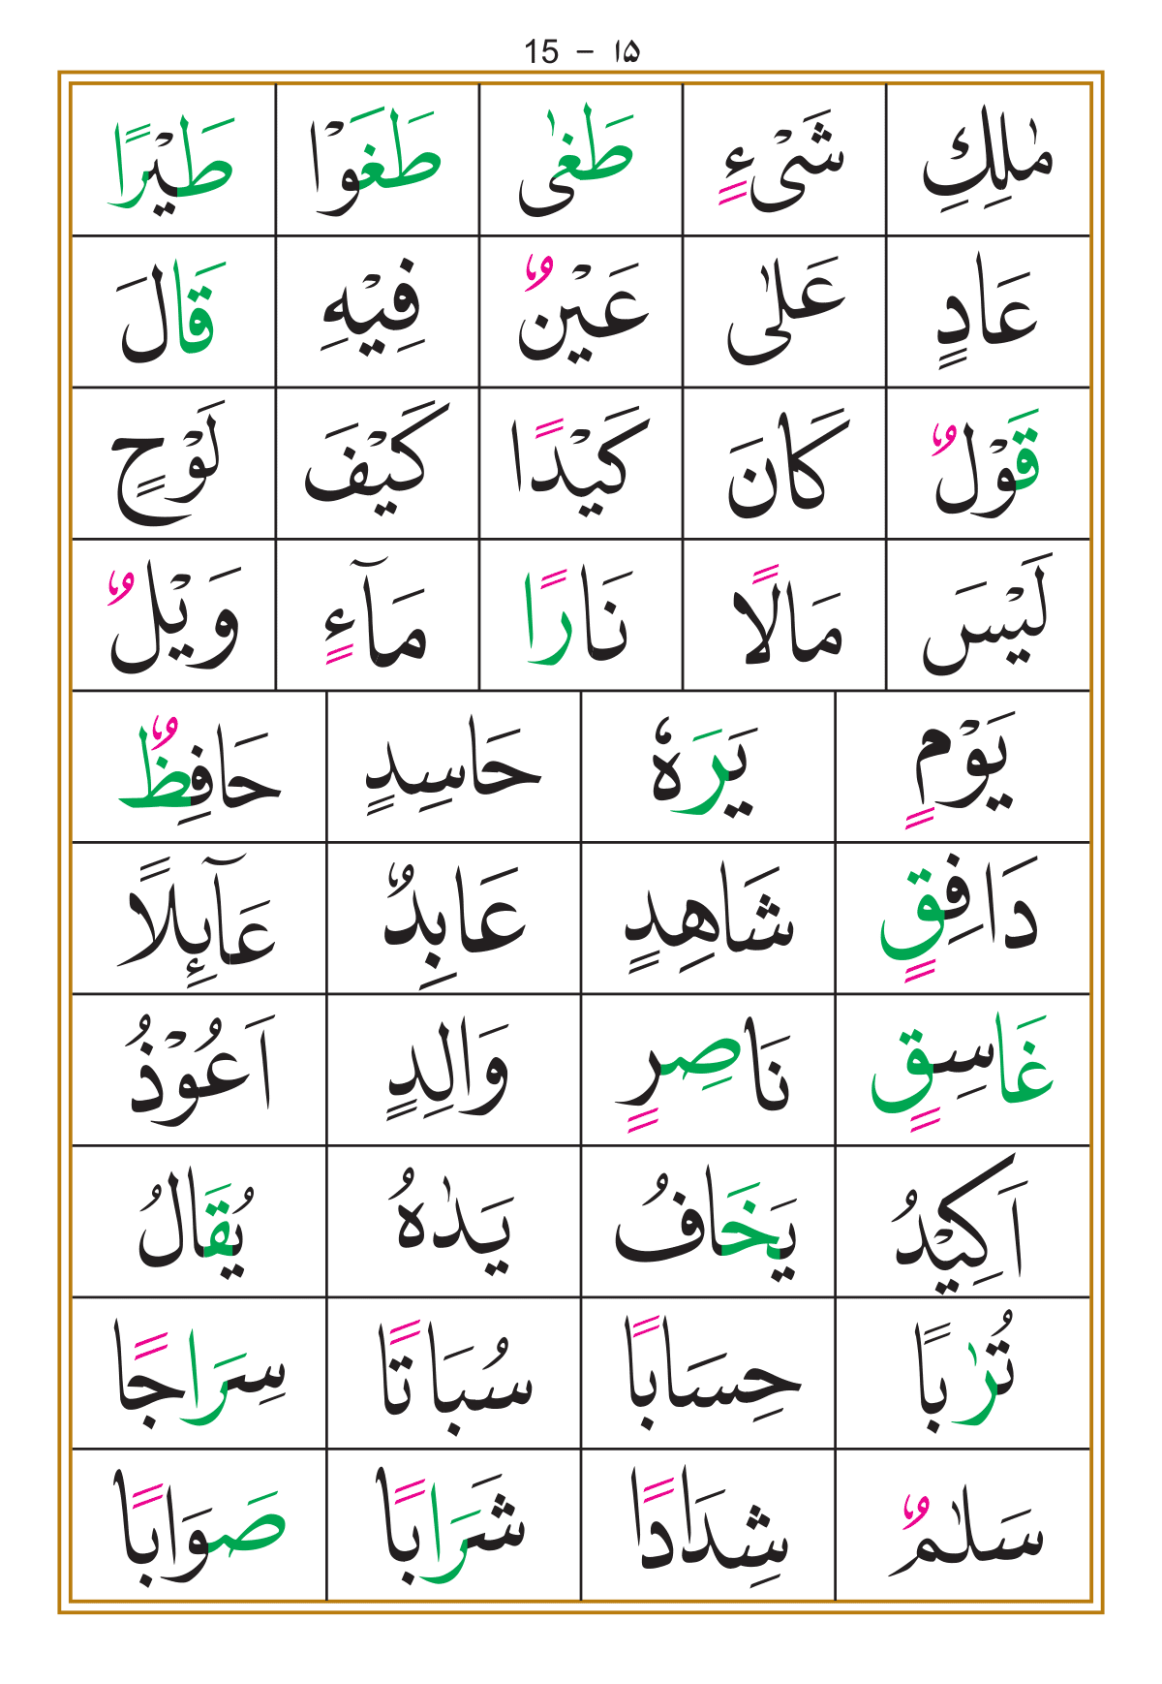 15 – ۱۵
مٰلِكِ شَىْءٍ طَغٰى طَغَوْا طَيْرًا
عَادٍ عَلٰى عَيْنٌ فِيْهِ قَالَ
قَوْلٌ كَانَ كَيْدًا كَيْفَ لَوْحٍ
لَيْسَ مَالًا نَارًا مَآءٍ وَيْلٌ
يَوْمٍ يَرَهٗ حَاسِدٍ حَافِظٌ
دَافِقٍ شَاهِدٍ عَابِدٌ عَآئِلًا
غَاسِقٍ نَاصِرٍ وَالِدٍ اَعُوْذُ
اَكِيْدُ يَخَافُ يَدٰهُ يُقَالُ
تُرٰبًا حِسَابًا سُبَاتًا سِرَاجًا
سَلٰمٌ شِدَادًا شَرَابًا صَوَابًا